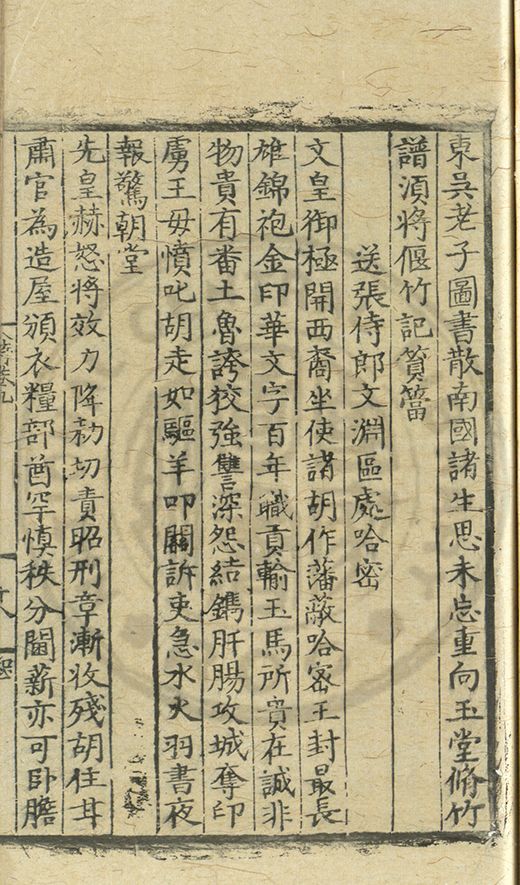 東吳老子圖書散南國諸生思未忘重向玉堂脩竹
譜湏將偃竹記篔簹
送張侍郎文淵區處哈密
文皇御極開西裔坐使諸胡作藩蔽哈密王封最長
雄錦袍金印華文字百年職貢輸玉馬所貴在誠非
物貴有番土魯誇狡強讐深怨結鐫肝腸攻城奪印
虜王毋憤叱胡走如驅羊叩關訴吏急水火羽書夜
報驚朝堂
先皇赫怒將效力降勑切責昭刑章漸收殘胡住甘
肅官為造屋頒衣糧部酋罕慎秩分閫薪亦可卧膽